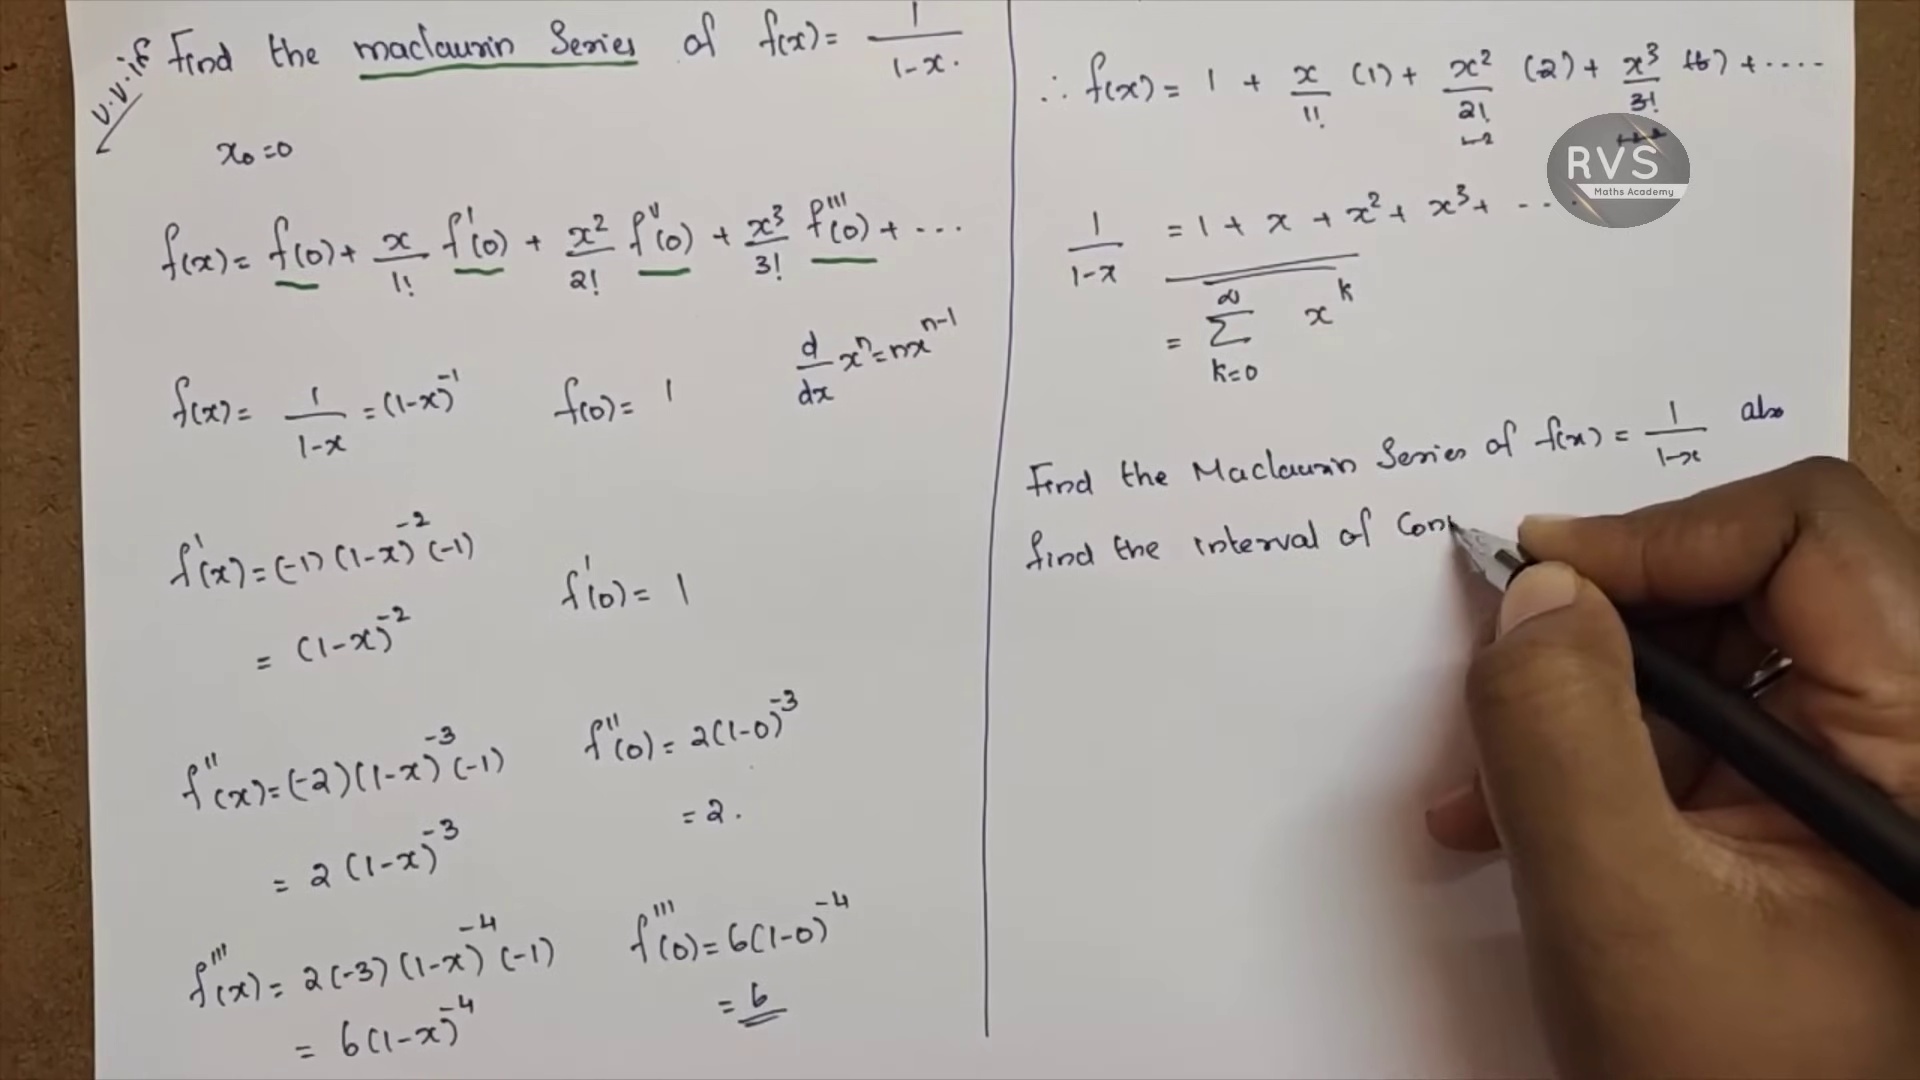 v.v.if
Find the maclaurin Series of f(x) = 1/(1-x).
x₀ = 0
f(x) = f(0) + x/1! f'(0) + x²/2! f''(0) + x³/3! f'''(0) + ...
d/dx xⁿ = nxⁿ⁻¹
f(x) = 1/(1-x) = (1-x)⁻¹ f(0) = 1
f'(x) = (-1)(1-x)⁻²(-1) f'(0) = 1
= (1-x)⁻²
f''(x) = (-2)(1-x)⁻³(-1) f''(0) = 2(1-0)⁻³
= 2(1-x)⁻³ = 2.
f'''(x) = 2(-3)(1-x)⁻⁴(-1) f'''(0) = 6(1-0)⁻⁴
= 6(1-x)⁻⁴ = 6
∴ f(x) = 1 + x/1! (1) + x²/2! (2) + x³/3! (6) + ....
RVS
Maths Academy
1/(1-x) = 1 + x + x² + x³ + ....
= ∞ Σ k=0 xᵏ
Find the Maclaurin Series of f(x) = 1/(1-x) also
find the interval of Con